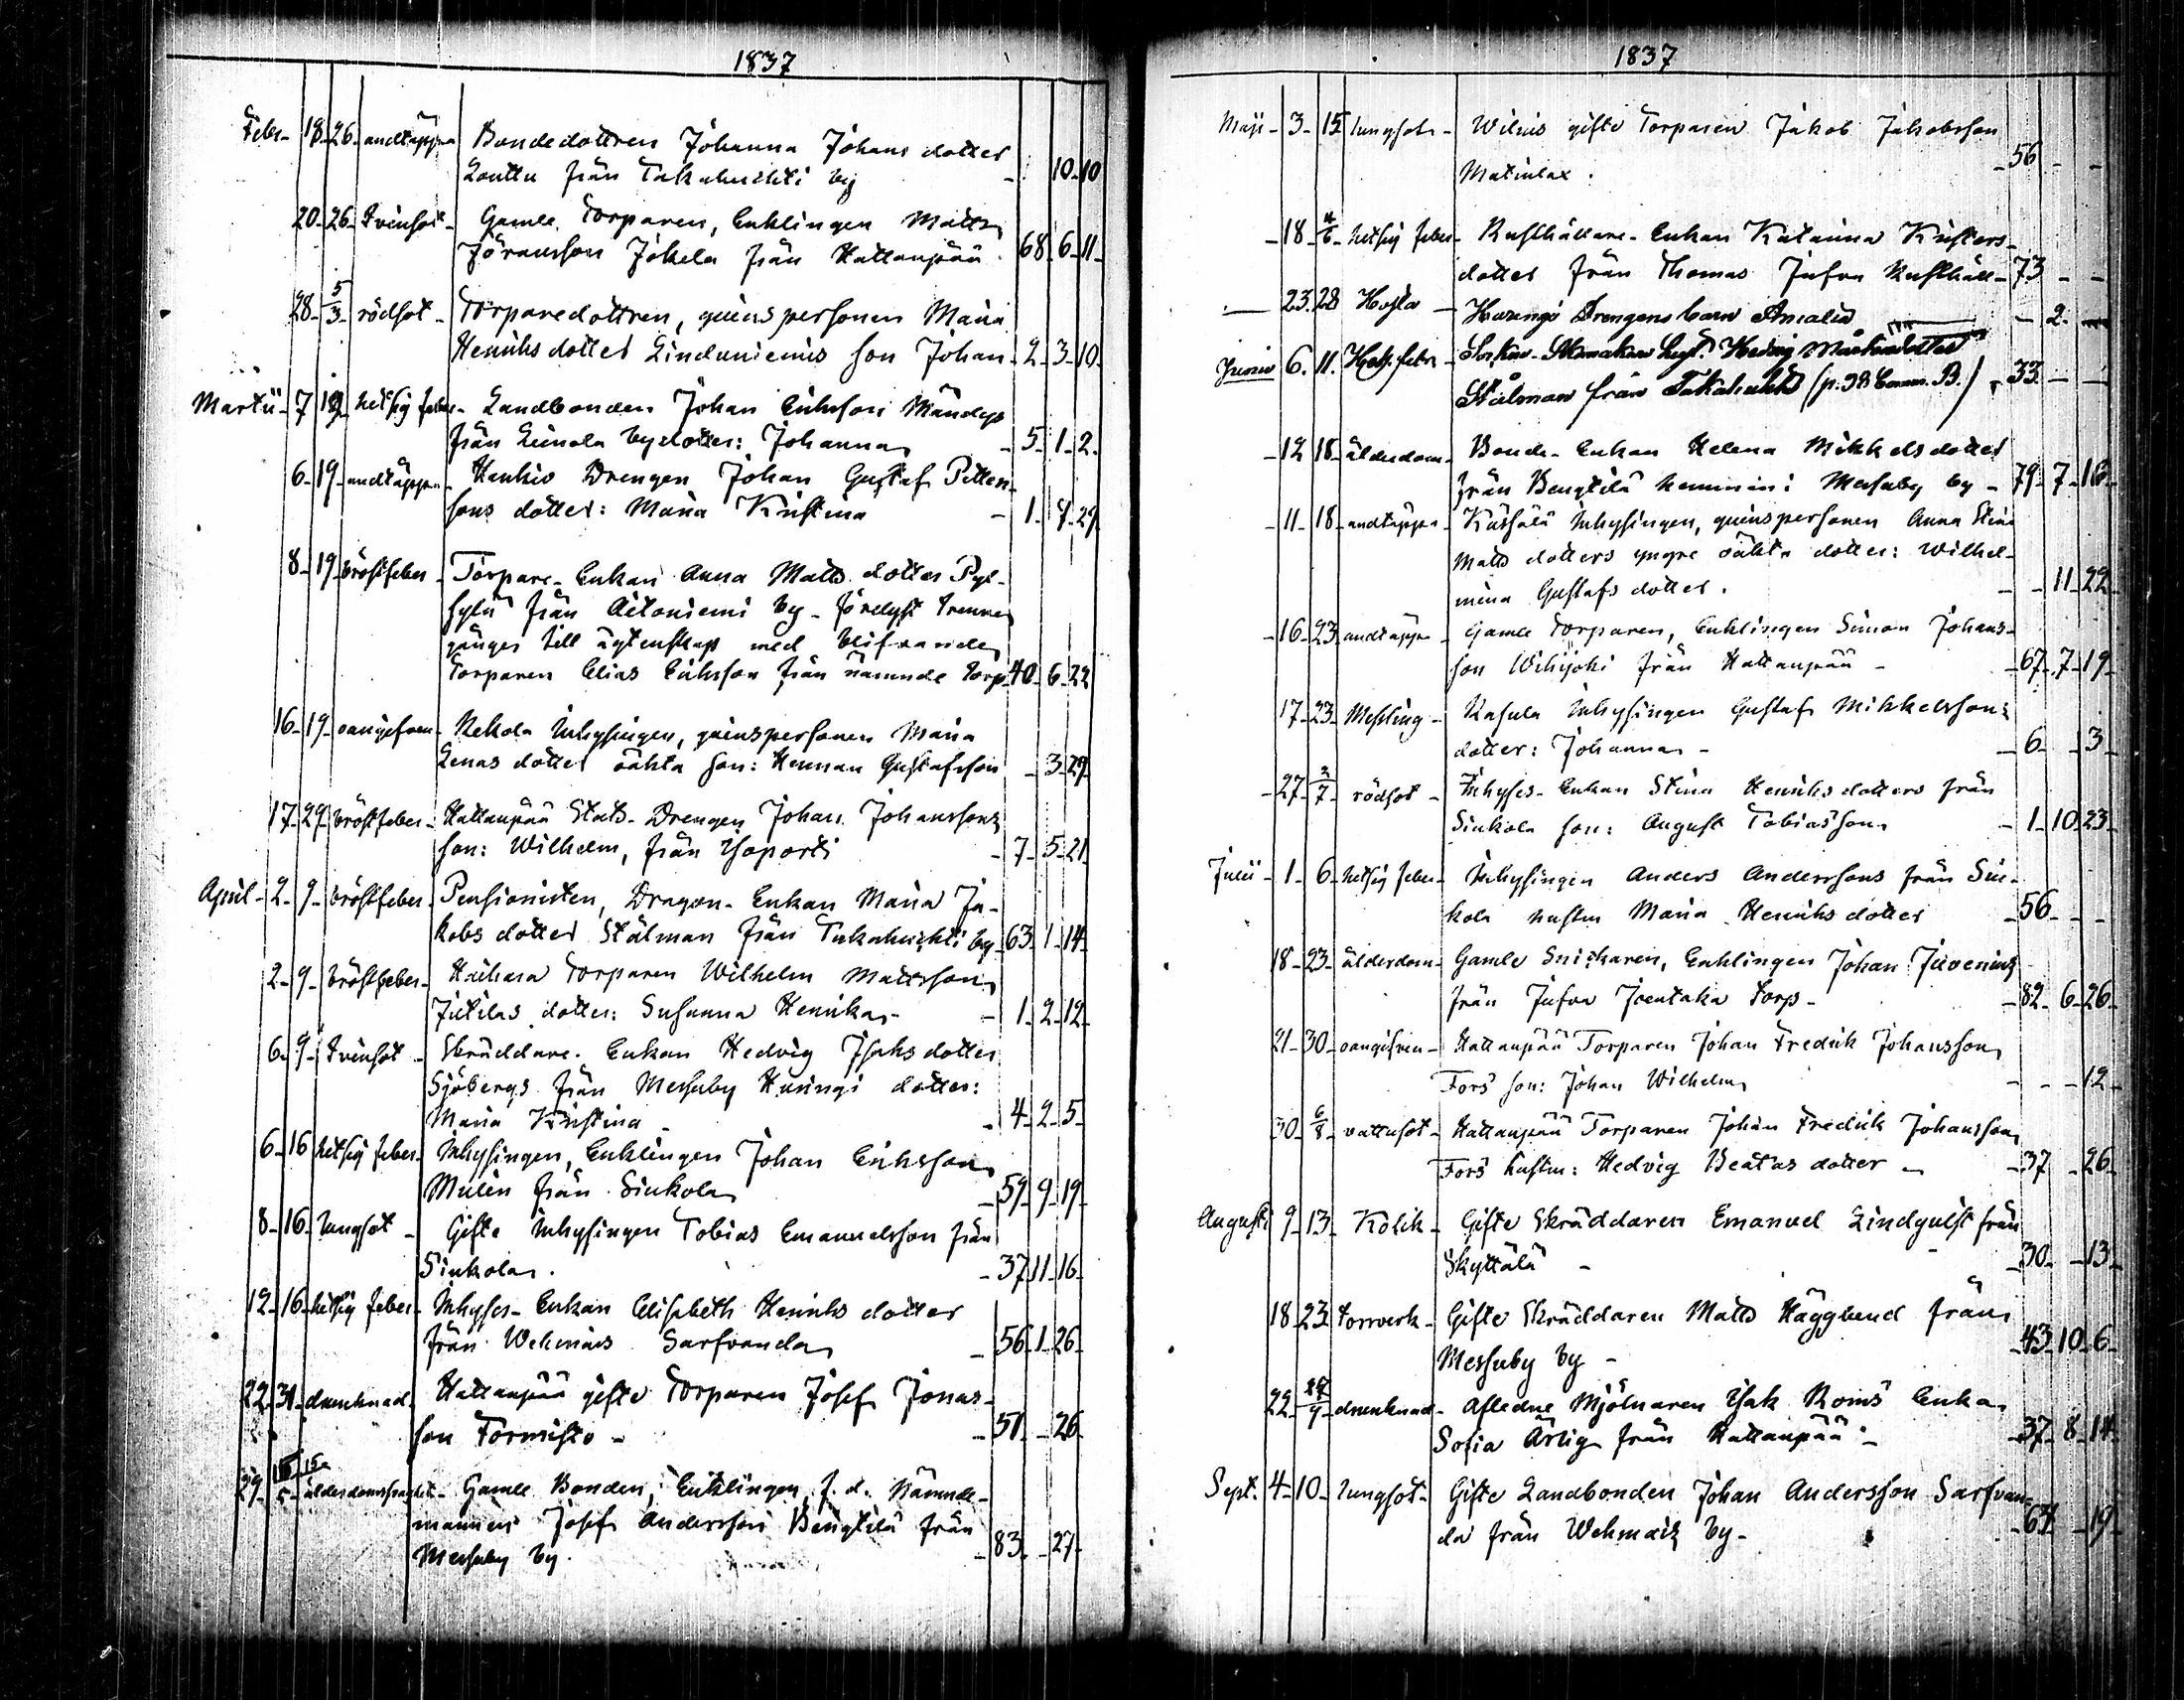 1837
Febr. 18. 26. andtäppa Bondedottren Johanna Johans dotter
Louttu från Takahuchti by - 10. 10
20. 26. tvinsot - Gamle Torparen, Enklingen Matts
Jöransson Jokela från Hattanpää. 68. 6. 11.
28. 5/3 rödsot - Torparedottren, qvinspersonen Maria
Henriks dotter Lindaniemis son Johan. 2. 3. 10.
Martii 7 19. hetsig feber - Landbonden Johan Eriksson
från Leinola by dotter: Johanna - 5. 1. 2.
6. 19. andtäppa - Drengen Johan Gustaf
sons dotter: Maria Kristina - 1. 29.
8. 19. bröstfeber - Torpare-Enkan Anna Matts dotter Pyl-
från Aitoniemi by - förelyst trenne
gånger till ägtenskap med blifvande
Torparen Elias Eriksson från nämnde torp 40. 6. 22
16. 19. oangifven - Rekola Inhysingen, qvinspersonen Maria
Lenas dotter oäkta son: Herman Gustafsson - 3. 29.
17. 29. bröstfeber - Hattanpää Stats-Drengen Johan Johanssons
son: Wilhelm, från Isoporti - 7. 5. 21
April - 2. 9. bröstfeber - Pensionisten, Dragon-Enkan Maria Ja-
kobs dotter Stålman från Takahuchti by 63. 1. 14.
2. 9. bröstfeber - Haihara Torparen Wilhelm Mattsson
Jutilas dotter: Susanna Henrika - 1. 2. 12.
6. 9. tvinsot - Skräddare-Enkan Hedvig Isaks dotter
Sjöbergs från Messuby Haringi dotter:
Maria Kristina - 4. 2. 5.
6. 16 hetsig feber - Inhysingen, Enklingen Johan Eriksson
från Sinkola - 59. 9. 19.
8. 16. lungsot - Gifte Inhysingen Tobias Emanuelsson från
Sinkola. - 37. 11. 16.
12. 16. hetsig feber - Inhyses-Enkan Elisabeth Henriks dotter
från Wehmais Sarfvanda - 56. 1. 26.
22. drunknad. Hattanpää gifte Torparen Josef Jonas-
son Tormisto - 51. - 26
29. ålderdomssvaghet - Gamle Bonden, Enklingen, f. d. Nämnde-
mannen Josef Andersson Bengtilä från
Messuby by. - 83. - 27.
1837
Maji - 3. 15 lungsot - Wilnis gifte Torparen Jakob Jakobsson
Matinlax. - 56 - -
18. hetsig feber - Rusthållare-Enkan Katarina Kristers-
dotter från Thomas Jufva Rusthåll - 73 - -
23. 28 Hosta - Haringi Drengens barn Amalia - 2. -
Junii 6. 11. Hets. feber - Sockne-Skomakare Hedvig
Stålman från Takahuhti (p. 98 Comm. B.) 33 - -
12 18. ålderdom - Bonde-Enkan Helena Mikkels dotter
från Bengtilä hemman i Messuby by - 79. 7. 16.
11. 18. andtäppa - Inhysingen, qvinspersonen Anna Stina
Matts dotters yngre oäkta dotter: Wilhel-
mina Gustafs dotter. - 11. 22.
16. 23. andtäppa - Gamle Torparen, Enklingen Simon Johans-
son Wihijoki från Hattanpää - 67. 7. 19.
17. 23. Messling - Inhysingen Gustaf Mikkelssons
dotter: Johanna - 6. 3
27. 2/7 rödsot - Inhyses-Enkan Stina Henriks dotters från
Sinkola son: August Tobiasson - 1. 10. 23.
Julii - 1. 6. hetsig feber - Inhysingen Anders Anderssons från Sin-
kola hustru Maria Henriks dotter - 56. - -
18. 23. ålderdom - Gamle Snickaren, Enklingen Johan Juvenius
från Jufva Torp - 82. 6. 26.
21. 30. oangifven - Hattanpää Torparen Johan Fredrik Johansson
Fors son: Johan Wilhelm - - - 12.
30. 6/8 vattusot - Hattanpää Torparen Johan Fredrik Johansson
Fors hustru: Hedvig Beatas dotter - 37 - 26.
Augusti 9. 13. Kolik - Gifte Skräddaren Emanuel Lindqvist från
Skyttälä - 30. - 13.
18. 23. torrverk - Gifte Skräddaren Matts Häggbend från
Messuby by - 43. 10. 6.
22. drunknad - Afledne Mjölnaren Isak Roms Enka
Sofia Ärlig från Hattanpää - 37. 8. 14.
Sept. 4. 10. lungsot - Gifte Landbonden Johan Andersson Sarfvan-
da från Wehmais by - 64. - 19.